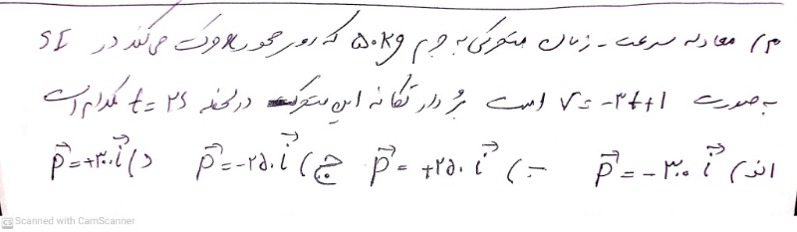 م) معادله سرعت - زمان متحرکی به جرم ۵۰kg که روی محور x حرکت می‌کند در SI
به صورت v = -۳t+۱ است بردار تکانه این متحرک در لحظه t = ۲s کدام است
الف) p⃗ = -۳۰۰ i⃗ ب) p⃗ = +۲۵۰ i⃗ ج) p⃗ = -۲۵۰ i⃗ د) p⃗ = +۳۰۰ i⃗
CS Scanned with CamScanner